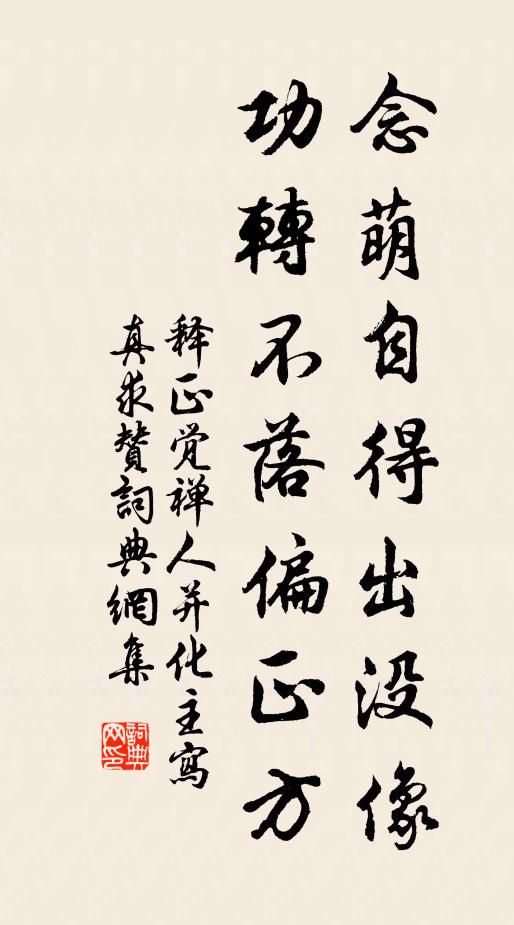 念萌自得出没像
功轉不落偏正方
释正觉禅人并化主寫
真求贊詞典網集
詞典
网印